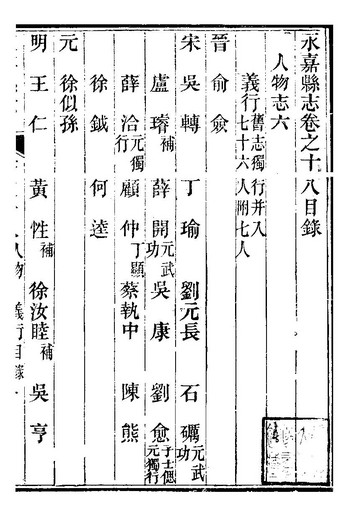 永嘉縣志卷之十八目錄
人物志六
義行舊志獨行并入七十六人附七人
晉 俞僉
宋 吳轉 丁瑜 劉元長 石礪元武功
盧璿補 薛開元武功 吳康 劉愈子士偲元獨行
薛洽元獨行 顧仲丁顯 蔡執中 陳熊
徐鉞 何逵
元 徐似孫
明 王仁 黃性補 徐汝睦補 吳亨
人物 義行目錄 一